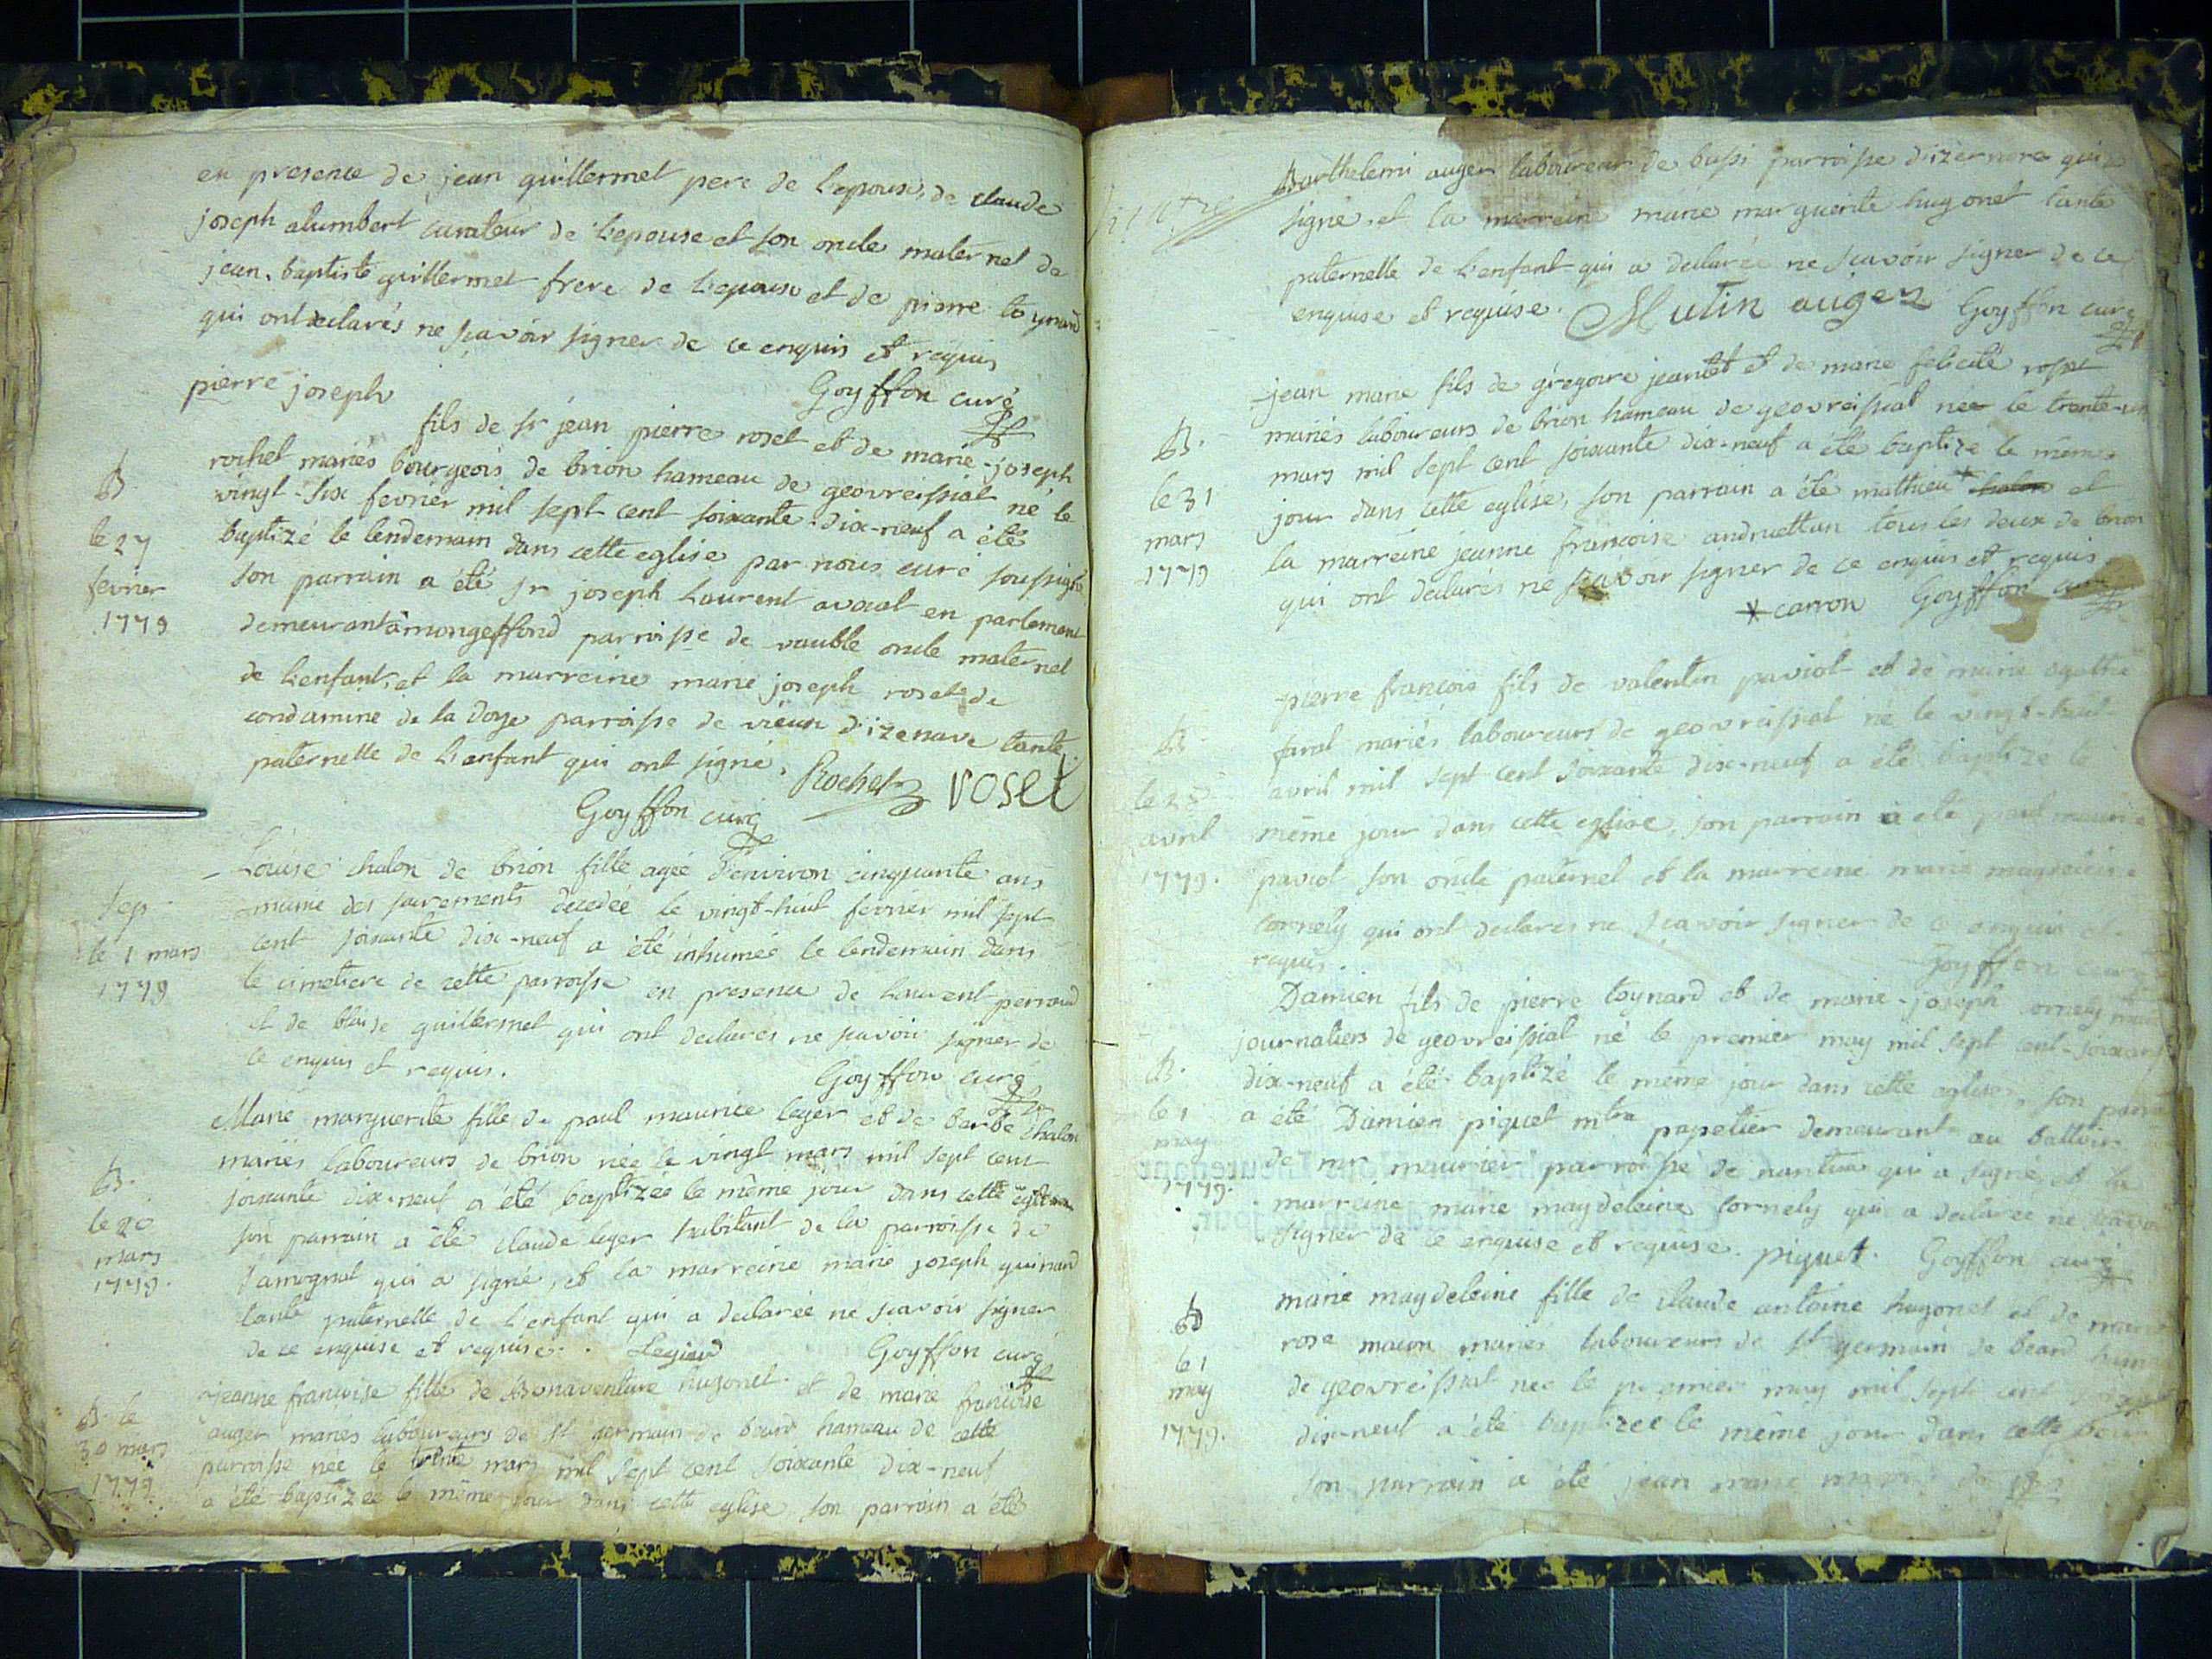 en presence de jean guillermet pere de l'epouse, de claude
joseph alumbert curateur de l'epouse et son oncle maternel de
jean-baptiste guillermet frere de l'epouse et de pierre toynard
qui ont declarés ne sçavoir signer de ce enquis et requis
Goyffon curé
pierre joseph fils de sr jean pierre roset et de marie-joseph
rochet mariés bourgeois de brion hameau de geovreissiat né le
vingt-six fevrier mil sept cent soixante-dix-neuf a été
baptizé le lendemain dans cette eglise par nous curé soussigné
son parrain a été sr joseph Laurent avocat en parlement
demeurant à mongeffond parroisse de vauble oncle maternel
de l'enfant, et la marreine marie joseph roset de
condamine de la doye parroisse de vieux d'izenave tante
paternelle de l'enfant qui ont signé. Rochet roset
Goyffon curé
B.
le 27
fevrier
1779
Louise chalon de brion fille agée d'environ cinquante ans
munie des sacrements decedée le vingt-huit fevrier mil sept
cent soixante dix-neuf a été inhumée le lendemain dans
le cimetiere de cette parroisse en presence de Laurent perraud
et de blaise guillermet qui ont declarés ne sçavoir signer de
ce enquis et requis. Goyffon curé
Sep.
le 1 mars
1779
Marie marguerite fille de paul maurice leger et de barbe chalon
mariés laboureurs de brion née le vingt mars mil sept cent
soixante dix-neuf a été baptizée le même jour dans cette eglise
son parrain a été claude leger habitant de la parroisse de
Samognat qui a signé, et la marreine marie joseph guinard
tante paternelle de l'enfant qui a declarée ne sçavoir signer
de ce enquise et requise. Goyffon curé
B.
le 20
mars
1779.
jeanne francoise fille de Bonaventure hugonet et de marie francoise
auger mariés laboureurs de st germain de beard hameau de cette
parroisse née le trente mars mil sept cent soixante dix-neuf
a été baptizée le même jour dans cette eglise son parrain a été
B. le
30 mars
1779
Barthelemi auger laboureur de bussi parroisse d'izernore qui a
signé, et la marreine marie marguerite hugonet tante
paternelle de l'enfant qui a declarée ne sçavoir signer de ce
enquise et requise. Mutin auger Goyffon curé
jean marie fils de gregoire jeantet et de marie felicité rosset
mariés laboureurs de brion hameau de geovreissiat née le trente-un
mars mil sept cent soixante dix-neuf a été baptizé le même
jour dans cette eglise, son parrain a été mathieu * chalon et
la marreine jeanne françoise andruettan tous les deux de brion
qui ont declarés ne sçavoir signer de ce enquis et requis
* carron Goyffon curé
B.
le 31
mars
1779
pierre françois fils de valentin paviot et de marie agathe
farat mariés laboureurs de geovreissiat né le vingt-huit
avril mil sept cent soixante dix-neuf a été baptizé le
même jour dans cette eglise, son parrain a été paul maurice
paviot son oncle paternel et la marreine marie magdeleine
cornely qui ont declarés ne sçavoir signer de ce enquis et
requis. Goyffon curé
B.
le 28
avril
1779.
Damien fils de pierre toynard et de marie-joseph cornely mariés
journaliers de geovreissiat né le premier may mil sept cent-soixante
dix-neuf a été baptizé le même jour dans cette eglise, son parrain
a été Damien piquet mtre papetier demeurant au battoir
de mr maurier parroisse de nantua qui a signé, et la
marreine marie magdeleine cornely qui a declarée ne sçavoir
signer de ce enquise et requise. piquet. Goyffon curé
B.
le 1
may
1779.
marie magdeleine fille de claude antoine hugonet et de marie
rose macon mariés laboureurs de st germain de beard hameau
de geovreissiat née le premier may mil sept cent
dix-neuf a été baptizée le même jour dans cette
son parrain a été jean marie
B
le 1
may
1779.